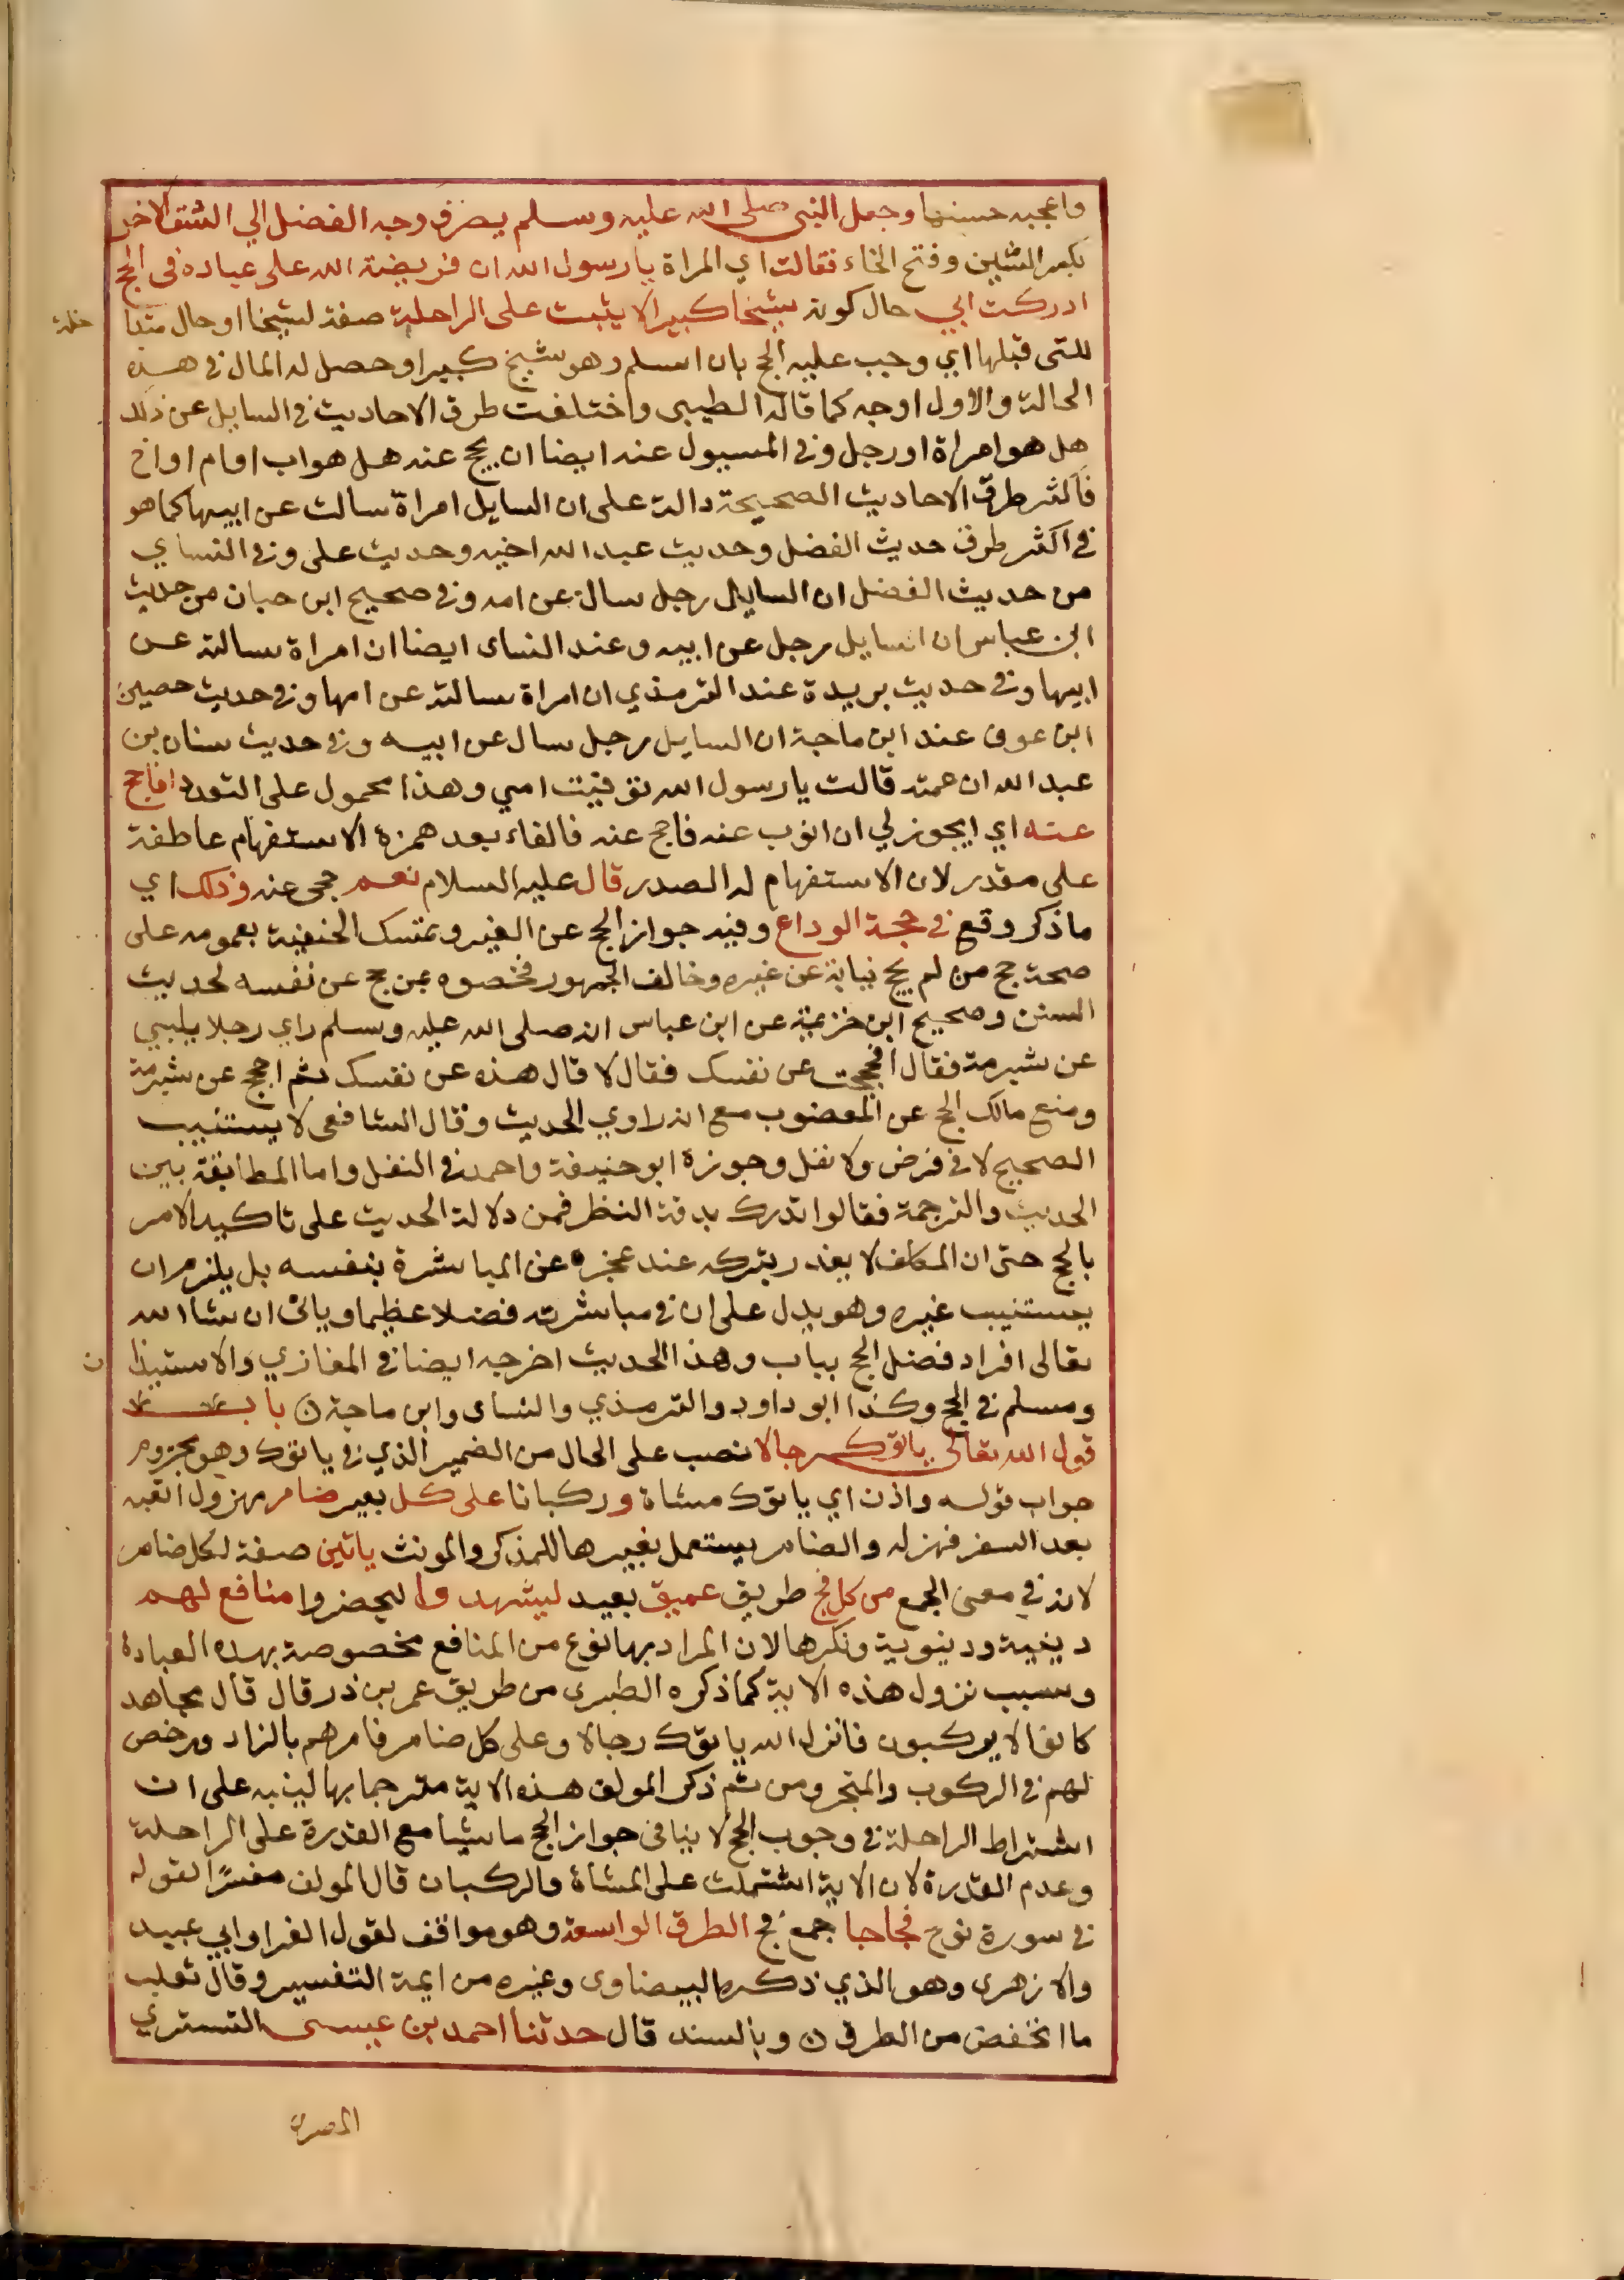 واعجبه حسنها وجعل النبي صلى الله عليه وسلم يصرف وجه الفضل الي الشق الاخر
بكسر الشين وفتح الخاء فقالت اي المراة يا رسول الله ان فريضة الله على عباده في الحج
ادركت ابي حال كونه شيخا كبيرا لا يثبت على الراحلة صفة لشيخا او حال متدا
خلة
للتى قبلها اي وجب عليه الحج بان اسلم وهو شيخ كبير او حصل له المال في هذه
الحالة والاول اوجه كما قاله الطيبى واختلفت طرق الاحاديث في السايل عن ذلك
هل هو امراة او رجل وفي المسيول عنه ايضا ان يحج عنه هل هو اب او ام او اخ
فاكثر طرق الاحاديث الصحيحة دالة على ان السايل امراة سالت عن ابيها كما هو
في اكثر طرق حديث الفضل وحديث عبد الله اخيه وحديث على وفي النساي
من حديث الفضل ان السايل رجل سال عن امه وفي صحيح ابن حبان من حديث
ابن عباس ان السايل رجل عن ابيه وعند النساى ايضا ان امراة سالته عن
ابيها وفي حديث بريدة عند الترمذي ان امراة سالته عن امها وفي حديث حصين
ابن عوف عند ابن ماجة ان السايل رجل سال عن ابيه وفي حديث سنان بن
عبد الله ان عمته قالت يا رسول الله توفيت امي وهذا محمول على التعدد افاحج
عنه اي ايجوز لي ان انوب عنه فاحج عنه فالفاء بعد همزة الاستفهام عاطفة
على مقدر لان الاستفهام له الصدر قال عليه السلام نعم حجى عنه وذلك اي
ما ذكر وقع في حجة الوداع وفيه جواز الحج عن الغير وتمسك الحنفية بعمومه على
صحة حج من لم يحج نيابة عن غيره وخالف الجمهور فخصوه بمن حج عن نفسه لحديث
السنن وصحيح ابن خزيمة عن ابن عباس انه صلى الله عليه وسلم راي رجلا يلبي
عن شبرمة فقال احججت عن نفسك فقال لا قال هذه عن نفسك ثم احجج عن شبرمة
ومنع مالك الحج عن المعضوب مع انه راوي الحديث وقال الشافعى لا يستنيب
الصحيح لا في فرض ولا نفل وجوزه ابو حنيفة واحمد في النفل واما المطابقة بين
الحديث والترجمة فقالوا تدرك بدقة النظر فمن دلالة الحديث على تاكيد الامر
بالحج حتى ان المكلف لا يعذر بتركه عند عجزه عن المباشرة بنفسه بل يلزم ان
يستنيب غيره وهو يدل على ان في مباشرته فضلا عظيما وياتى ان شا الله
تعالى افراد فضل الحج بباب وهذا الحديث اخرجه ايضا في المغازي والاستيذا
ن
ومسلم في الحج وكذا ابو داود والترمذي والنساى وابن ماجة ن باب
قول الله تعالى ياتوك رجالا نصب على الحال من الضمير الذي في ياتوك وهو مجزوم
جواب قوله واذن اي ياتوك مشاة وركبانا على كل بعير ضامر مهزول اتعبه
بعد السفر فهزله والضامر يستعمل بغير ها للمذكر والمونث ياتين صفة لكل ضامر
لانه في معنى الجمع من كل فج طريق عميق بعيد ليشهدوا ليحضروا منافع لهم
دينية ودنيوية ونكرها لان المراد بها نوع من المنافع مخصوصة بهذه العبادة
وسبب نزول هذه الاية كما ذكره الطبرى من طريق عمر بن ذر قال قال مجاهد
كانوا لا يركبون فانزل الله ياتوك رجالا وعلى كل ضامر فامرهم بالزاد ورخص
لهم في الركوب والمتجر ومن ثم ذكر المولف هذه الاية مترجما بها لينبه على ان
اشتراط الراحلة في وجوب الحج لا ينافى جواز الحج ماشيا مع القدرة على الراحلة
وعدم القدرة لان الاية اشتملت على المشاة والركبان قال المولف مفسرا لقوله
في سورة نوح فجاجا جمع فج الطرق الواسعة وهو موافق لقول الفرا وابي عبيد
والازهرى وهو الذي ذكره البيضاوى وغيره من ايمة التفسير وقال ثعلب
ما انخفض من الطرق ن وبالسند قال حدثنا احمد بن عيسى التستري
المصرى